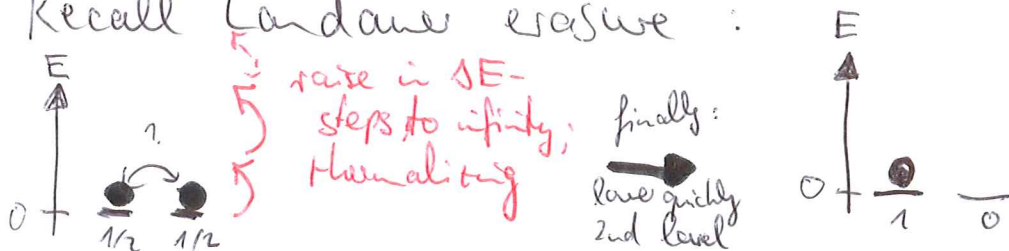 Recall Landauer erasure :
E
E
raise in ΔE-
steps to infinity;
thermalizing
finally:
1.
0
1/2 1/2
lower quickly
2nd level
0
1 0